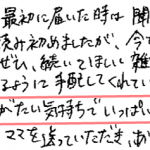 最初に届いた時は 開
読み初めましたが、今で
ぜひ、続いてほしい雑
るように手配してくれてい
がたい気持ちでいっぱい
ママを送っていただき、あ